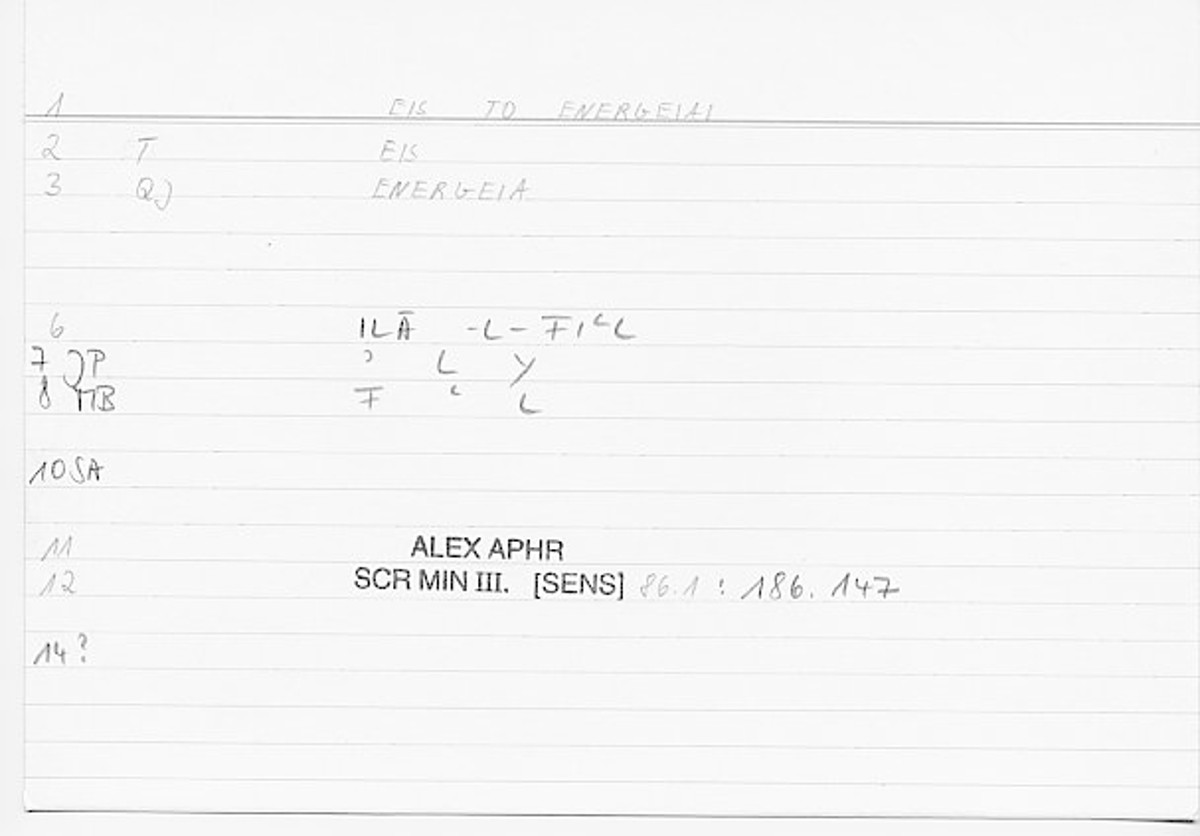 1 EIS TO ENERGEIAI
2 T EIS
3 QJ ENERGEIA
6 ILĀ -L- F̅IᴸL
7 JP ʾ L Y
8 MB F̅ ᴸ L
10 SA
11 ALEX APHR
12 SCR MIN III. [SENS] 86.1 : 186. 147
14?